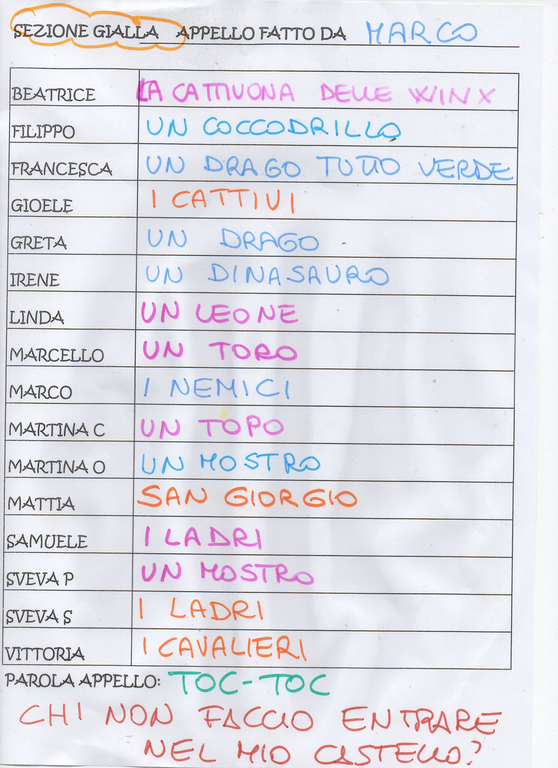 SEZIONE GIALLA APPELLO FATTO DA MARCO
BEATRICE LA CATTIVONA DELLE WINX
FILIPPO UN COCCODRILLO
FRANCESCA UN DRAGO TUTTO VERDE
GIOELE I CATTIVI
GRETA UN DRAGO
IRENE UN DINASAURO
LINDA UN LEONE
MARCELLO UN TORO
MARCO I NEMICI
MARTINA C UN TOPO
MARTINA O UN MOSTRO
MATTIA SAN GIORGIO
SAMUELE I LADRI
SVEVA P UN MOSTRO
SVEVA S I LADRI
VITTORIA I CAVALIERI
PAROLA APPELLO: TOC-TOC
CHI NON FACCIO ENTRARE
NEL MIO CASTELLO?